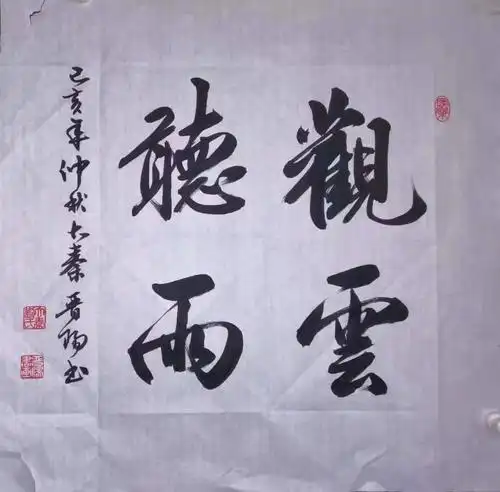 觀雲
聽雨
己亥年仲秋大秦晋陽書